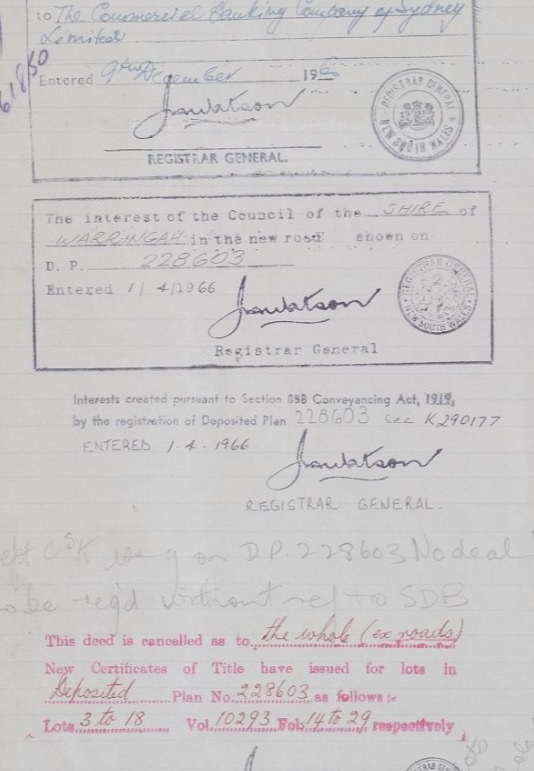 to The Commercial Banking Company of Sydney
Limited
Entered 9th December 19
REGISTRAR GENERAL.
REGISTRAR GENERAL NEW SOUTH WALES
The interest of the Council of the SHIRE of
WARRINGAH in the new road shown on
D. P. 228603
Entered 1/4/1966
REGISTRAR GENERAL NEW SOUTH WALES
Registrar General
Interests created pursuant to Section 88B Conveyancing Act, 1919,
by the registration of Deposited Plan 228603 see K290177
ENTERED 1.4.1966
REGISTRAR GENERAL.
on D.P. 228603 No deal
be regd without ref to SDB
This deed is cancelled as to the whole (ex roads)
New Certificates of Title have issued for lots in
Deposited Plan No. 228603 as follows:-
Lots 3 to 18 Vol. 10293 Fols 14 to 29 respectively